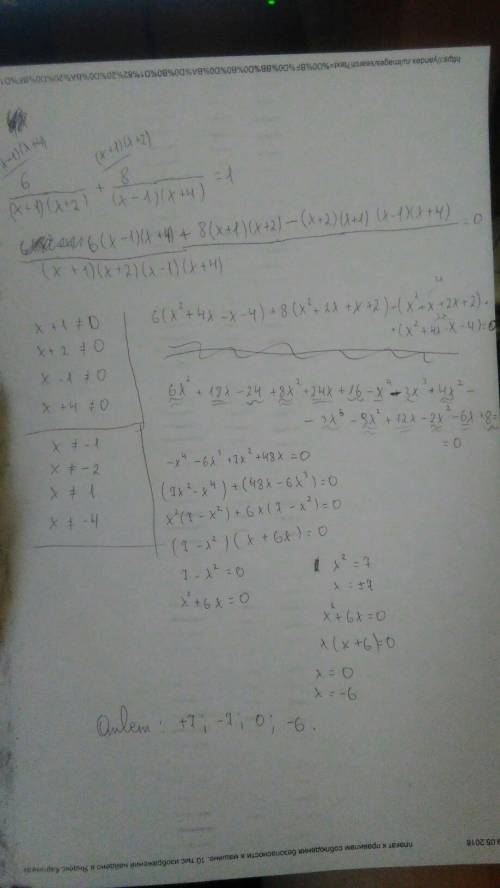 (x-1)(x+4) (x+1)(x+2)
6/((x+1)(x+2)) + 8/((x-1)(x+4)) = 1
(6(x-1)(x+4) + 8(x+1)(x+2) - (x+2)(x+1)(x-1)(x+4))/((x+1)(x+2)(x-1)(x+4)) = 0
x + 1 ≠ 0
x + 2 ≠ 0
x - 1 ≠ 0
x + 4 ≠ 0
x ≠ -1
x ≠ -2
x ≠ 1
x ≠ -4
6(x²+4x-x-4)+8(x²+2x+x+2)-(x²+x+2x+2)·
·(x²+4x-x-4)=0
6x² + 18x - 24 + 8x² + 24x + 16 - x⁴ - 3x³ + 4x² -
- 3x³ - 9x² + 12x - 2x² - 6x + 8 =
= 0
-x⁴ - 6x³ + 7x² + 48x = 0
(7x² - x⁴) + (48x - 6x³) = 0
x²(7 - x²) + 6x(7 - x²) = 0
(7 - x²)(x + 6x) = 0
7 - x² = 0
x² + 6x = 0
x² = 7
x = ±7
x² + 6x = 0
x(x + 6) = 0
x = 0
x = -6
Ответ: +7; -7; 0; -6.
плакат к правилам соблюдения безопасности в машине: 10 тыс изображений найдено в Яндекс.Картинках
.05.2018